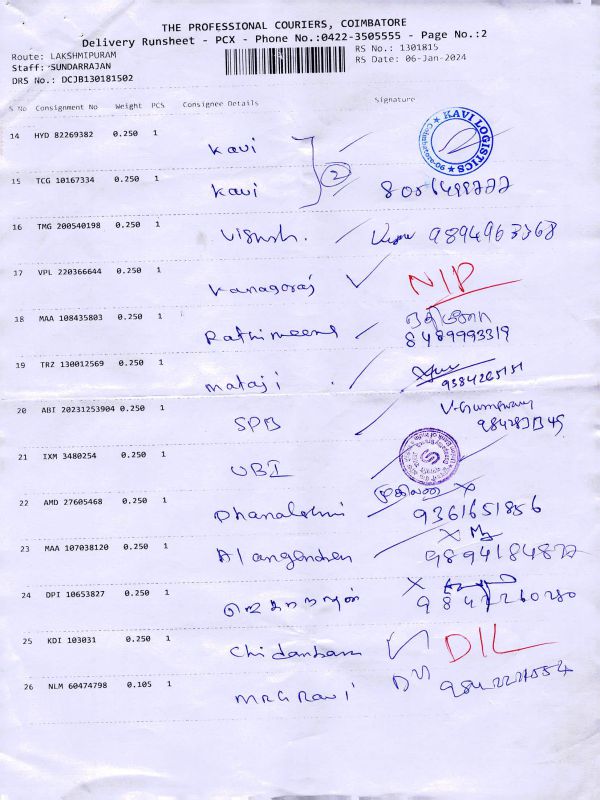 THE PROFESSIONAL COURIERS, COIMBATORE
Delivery Runsheet - PCX - Phone No.:0422-3505555 - Page No.:2
Route: LAKSHMIPURAM
RS No.: 1301815
Staff: SUNDARRAJAN
RS Date: 06-Jan-2024
DRS No.: DCJB130181502
S No Consignment No Weight PCS Consignee Details Signature
14 HYD 82269382 0.250 1 Kavi
2
KAVI LOGISTICS
Coimbatore-06
15 TCG 10167334 0.250 1 Kavi
16 TMG 200540198 0.250 1 Vignesh. 9894963368
17 VPL 220366644 0.250 1 Kanagaraj NIP
18 MAA 108435803 0.250 1 Rathimeena 8489993319
19 TRZ 130012569 0.250 1 mataji 9384265151
20 ABI 20231253904 0.250 1 SPB
21 IXM 3480254 0.250 1 UBI
22 AMD 27605468 0.250 1 Dhanalakshmi 9361651856
23 MAA 107038120 0.250 1
24 DPI 10653827 0.250 1 9842226080
25 KDI 103031 0.250 1 Chidambaram DIL
26 NLM 60474798 0.105 1 MRG Ravi